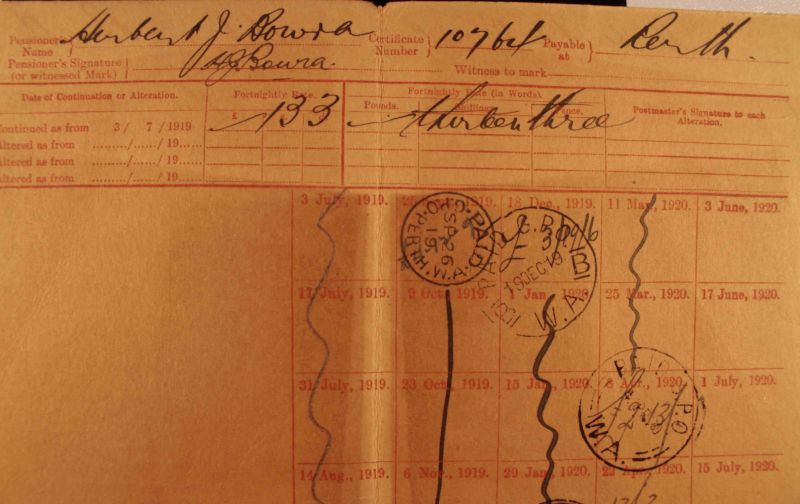 Pensioner's Name } Herbert J. Bowra Certificate Number } 10764 Payable at } Perth.
Pensioner's Signature (or witnessed Mark) } HJBowra. Witness to mark
Date of Continuation or Alteration. Fortnightly Rate. Fortnightly Rate (in Words). Postmaster's Signature to each Alteration.
£ Pounds. Shillings. Pence.
Continued as from 3 / 7 / 1919 133 thirteen three
Altered as from ......../....../ 19......
Altered as from ......../....../ 19......
Altered as from ......../....../ 19......
3 July, 1919. 18 Dec., 1919. 11 Mar., 1920. 3 June, 1920.
G.P.O. PERTH. W.A. PAID 26 SP 19
19 DEC 19 W.A.
17 July, 1919. 9 Oct., 1919. 1 Jan., 1920. 25 Mar., 1920. 17 June, 1920.
31 July, 1919. 23 Oct., 1919. 15 Jan., 1920. 8 Apr., 1920. 1 July, 1920.
P.O W.A.
14 Aug., 1919. 6 Nov., 1919. 29 Jan., 1920. 22 Apr., 1920. 15 July, 1920.